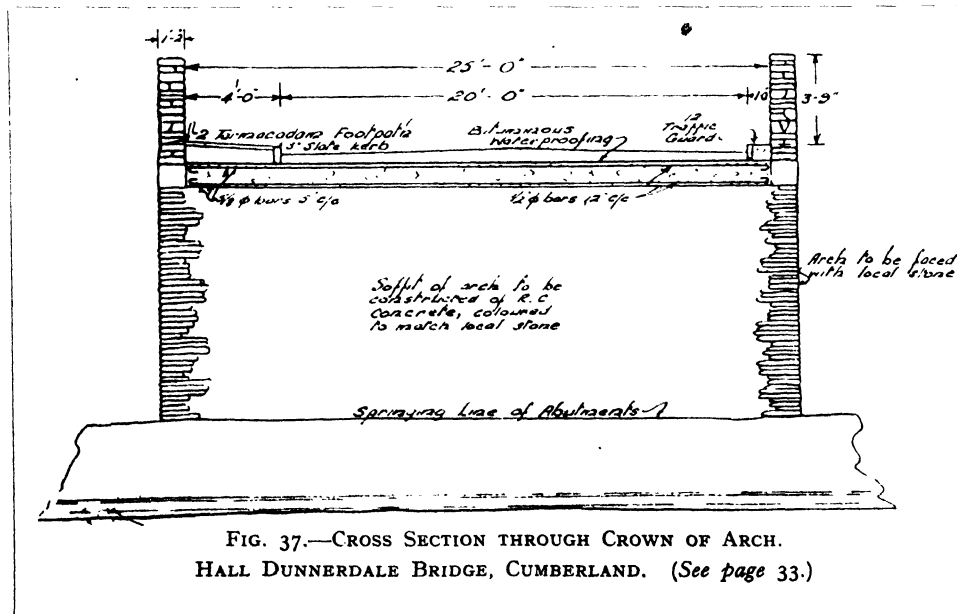 1'-2"
25'-0"
4'-0"
20'-0"
10"
3'-9"
2" Tarmacadam Footpath
5" Slate kerb
Bituminous
Waterproofing
12"
Traffic
Guard.
5/8 φ bars 5" c/c
1/2 φ bars 12" c/c
Arch to be faced
with local stone
Soffit of arch to be
constructed of R.C
concrete, coloured
to match local stone
Springing Line of Abutments
FIG. 37.—CROSS SECTION THROUGH CROWN OF ARCH.
HALL DUNNERDALE BRIDGE, CUMBERLAND. (See page 33.)